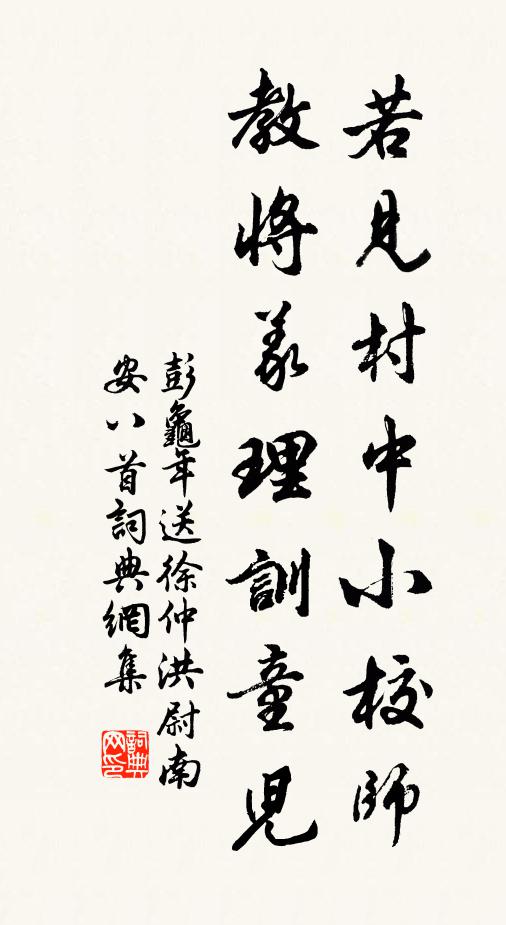 若見村中小校師
教將義理訓童兒
彭龜年送徐仲洪尉南
安八首詞典網集
詞典网印